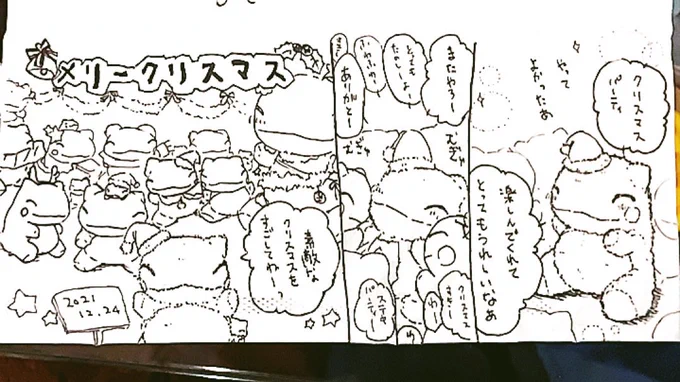 クリスマス
パーティ
やって
よかったぁ
楽しんでくれて
とってもうれしいなぁ
またねうー
とっても
たのしー
ありがとー
むぎゅ
むぎゅ
クリスマス
ステキ
パーティー
メリークリスマス
素敵な
クリスマスを
すごしてねー
2021
12.24